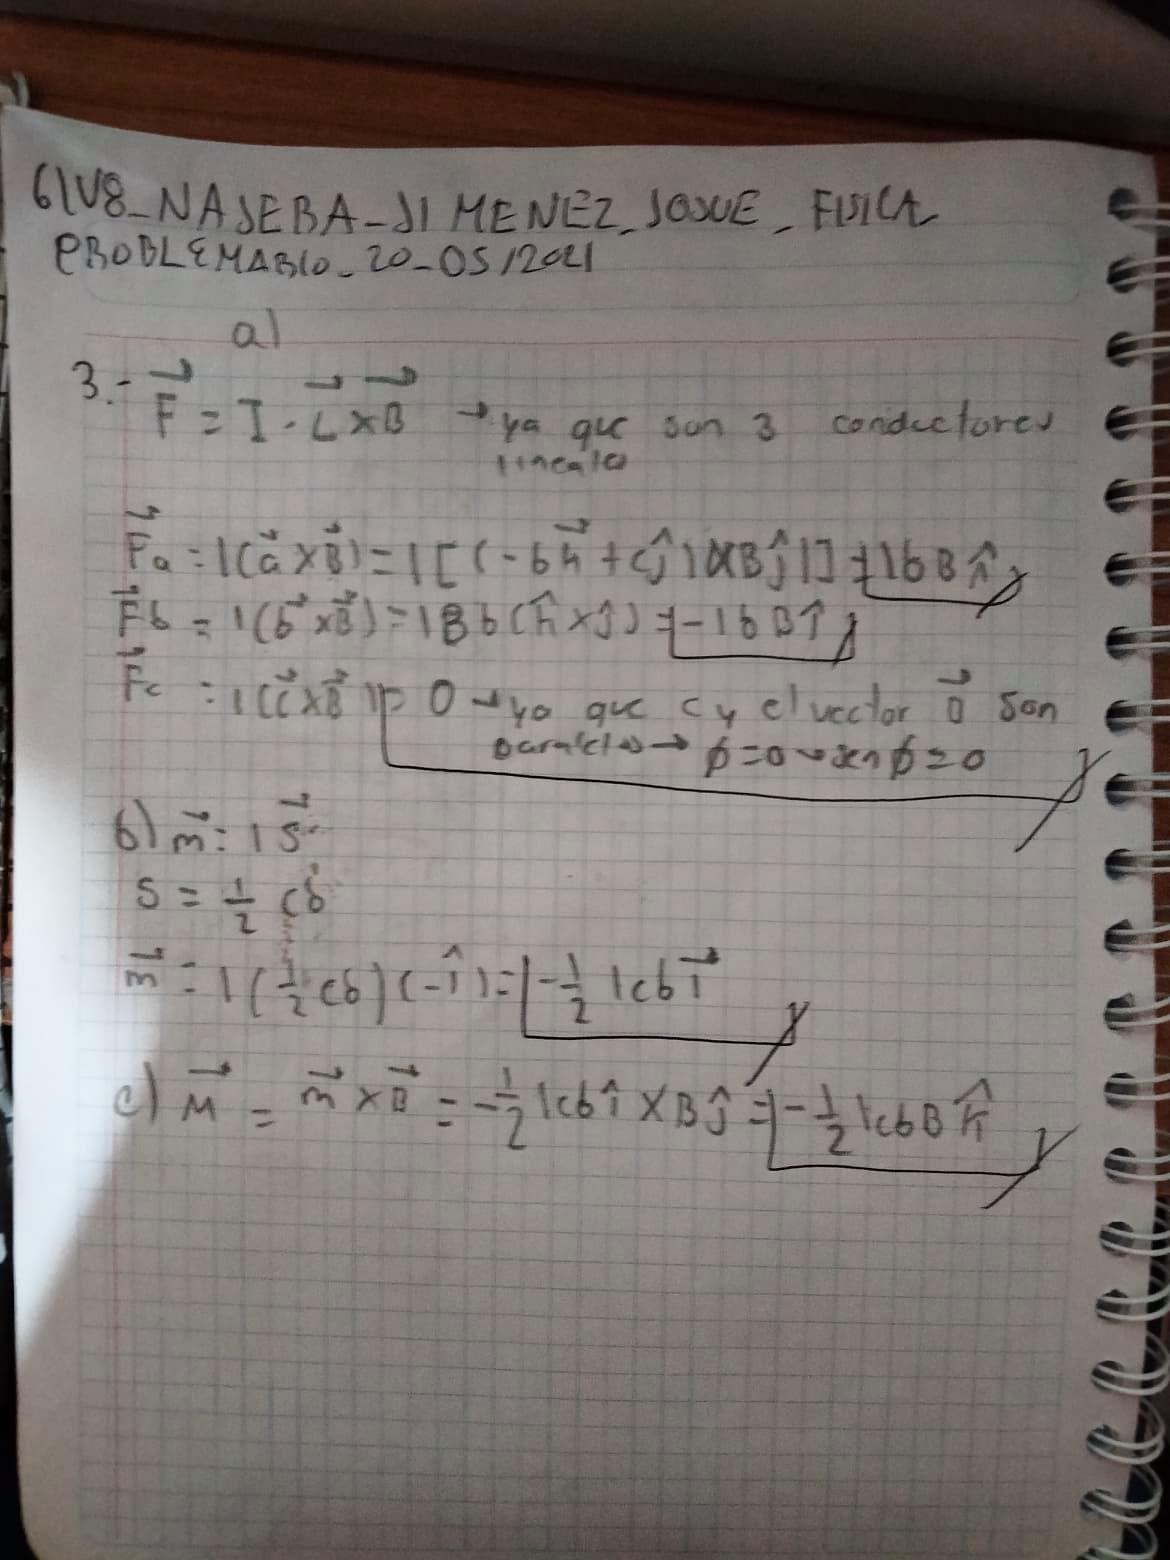 61V8_NAJEBA-JIMENEZ_JOSUE_FISICA
PROBLEMARIO_20-05/2021
a)
3.- F⃗ = I · L⃗ x B⃗ → ya que son 3 conductores
lineales
F⃗a = I(a⃗ x B⃗) = I[(-bk⃗ + cĵ)x(Bĵ)] = IbBî
F⃗b = I(b⃗ x B⃗) = IBb(k̂ x ĵ) = -IbBî
F⃗c = I(c⃗ x B⃗) = 0 → ya que c y el vector B⃗ son
paralelos → ϕ=0 → sen ϕ = 0
b) m⃗ = I S⃗
S = 1/2 cb
m⃗ = I(1/2 cb)(-î) = -1/2 Icb i⃗
c) M⃗ = m⃗ x B⃗ = -1/2 Icb î x B ĵ = -1/2 IcbB k̂